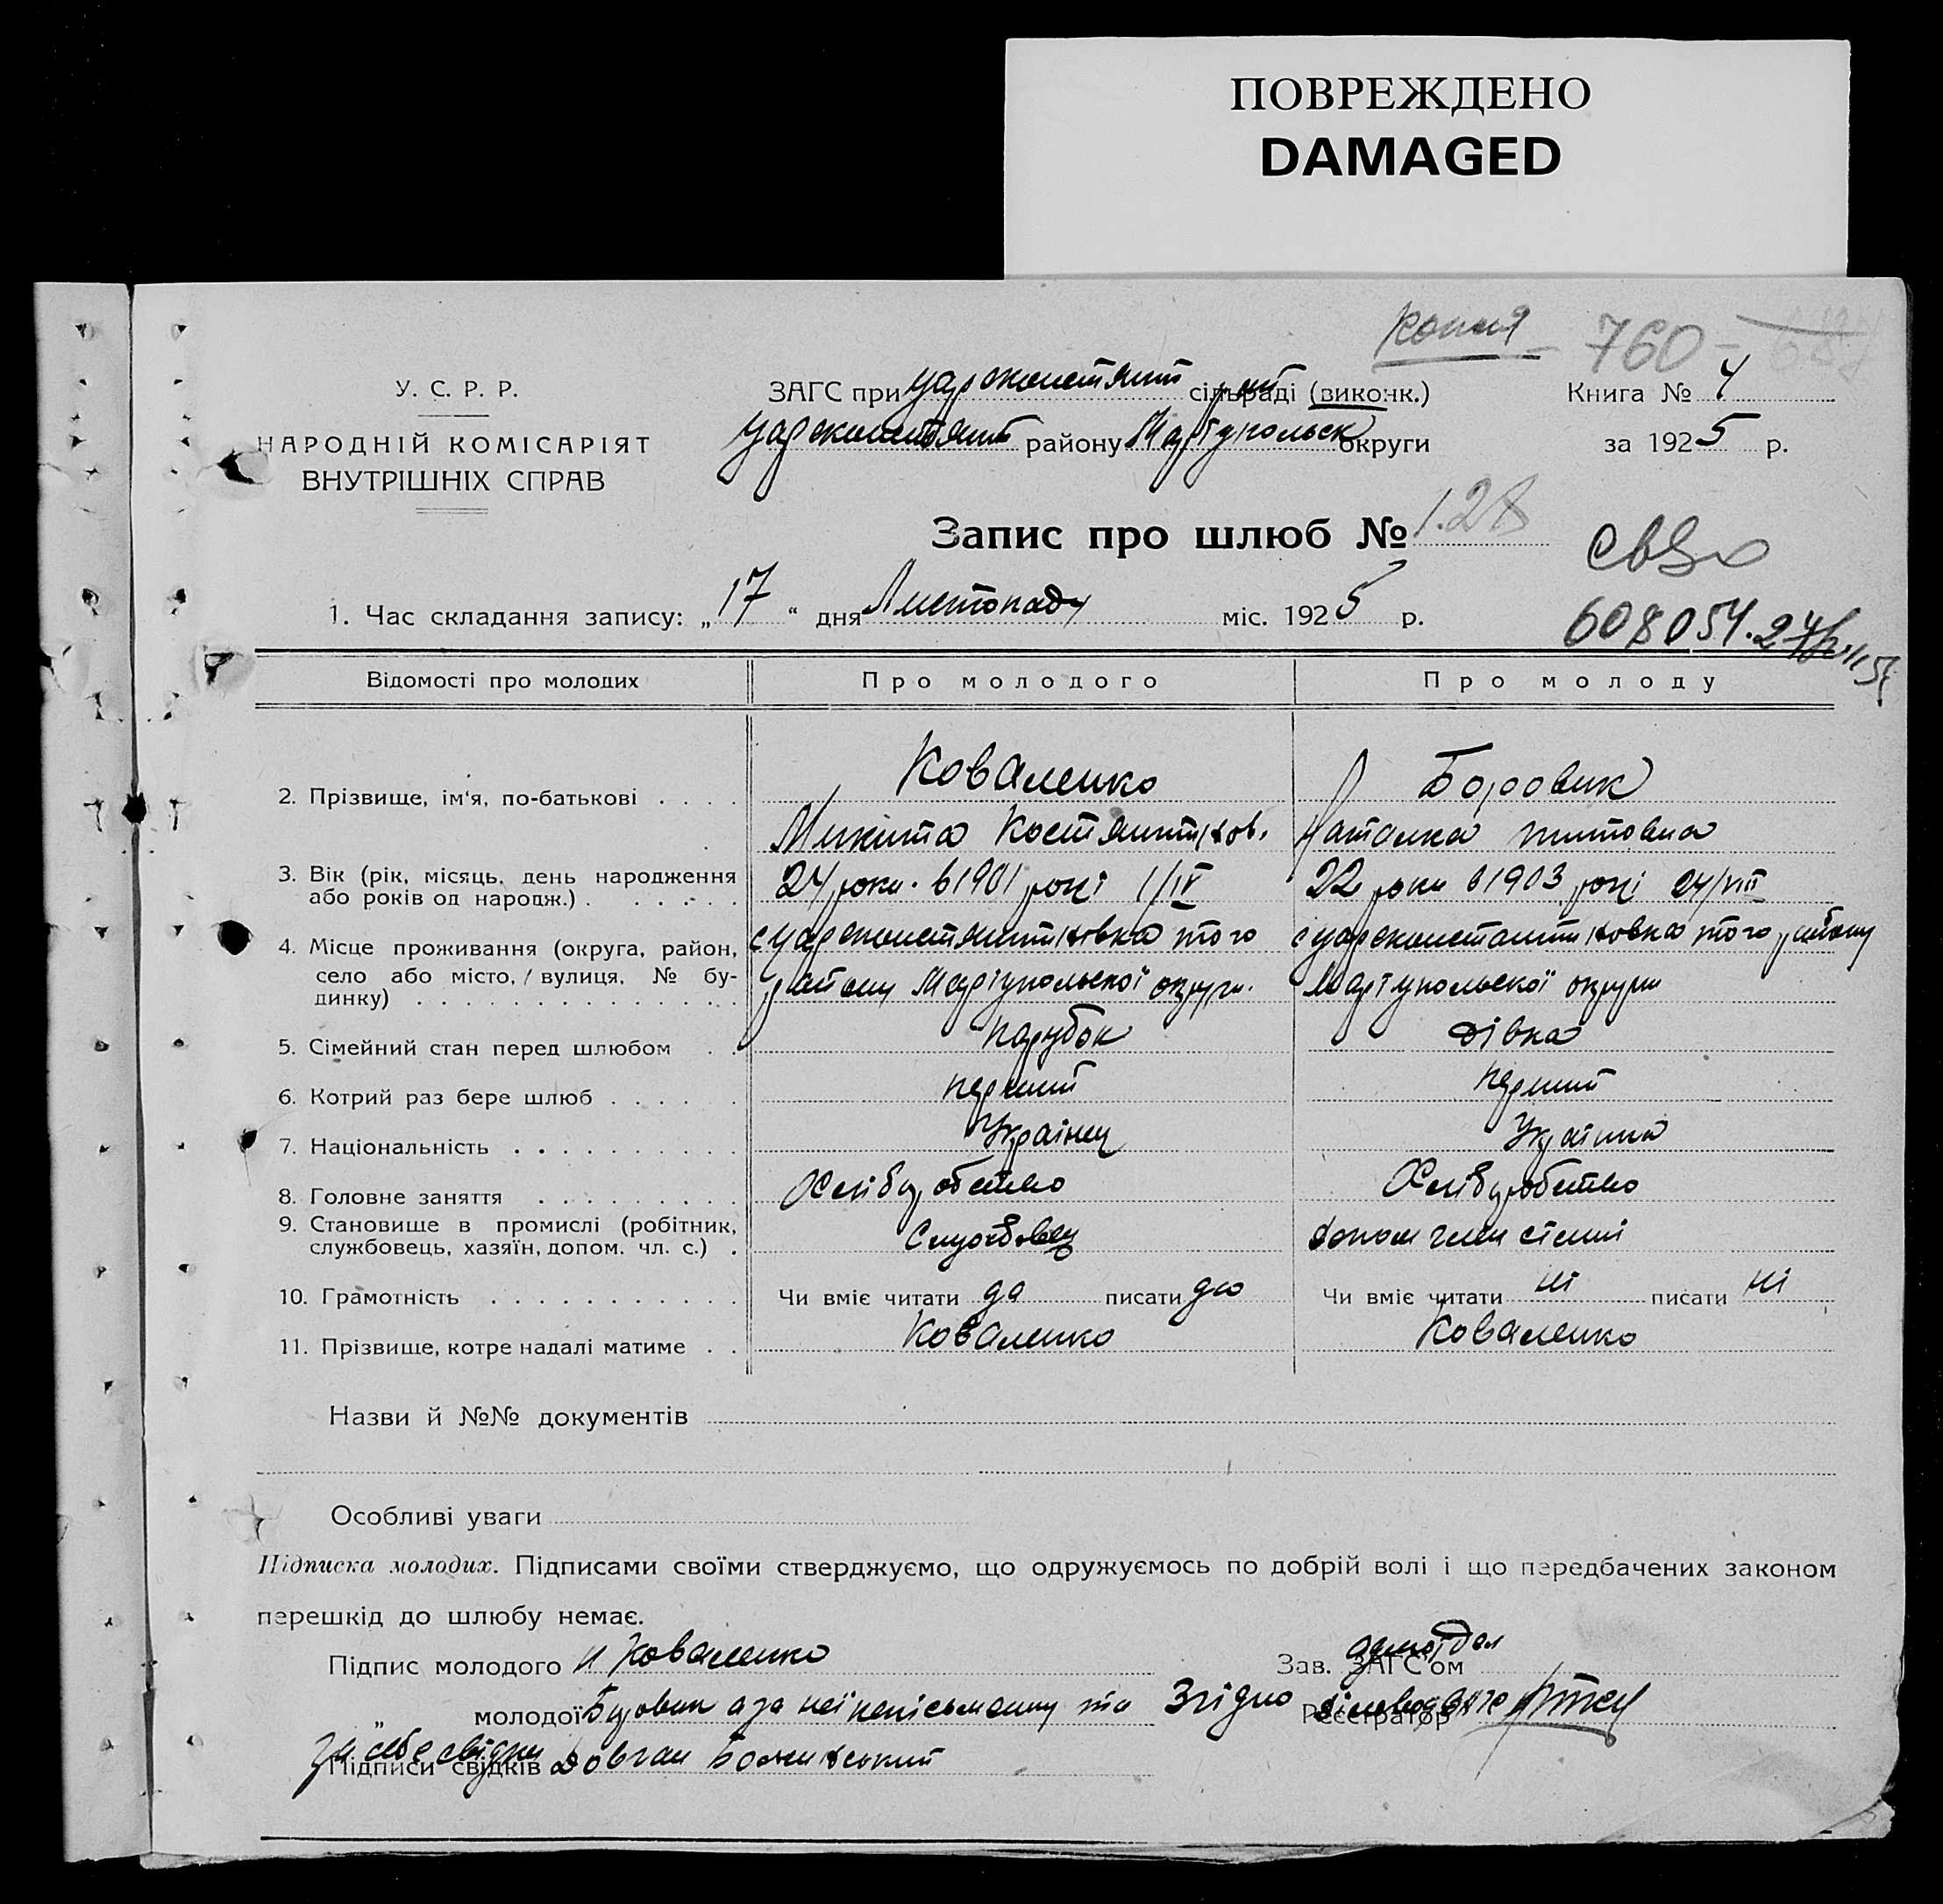 ПОВРЕЖДЕНО
DAMAGED
копия - 760 -
У. С. Р. Р.
НАРОДНІЙ КОМІСАРІЯТ
ВНУТРІШНІХ СПРАВ
ЗАГС при царсконстянт сільраді (виконк.)
царсконстянт району Маріупольск округи
Книга № 4
за 1925 р.
Запис про шлюб № 128
608054
1. Час складання запису: „17“ дня Листопаду міс. 1925 р.
Відомості про молодих Про молодого Про молоду
2. Прізвище, ім'я, по-батькові . . . . Коваленко Боровик
Микита Костянтинов. Наталка титовна
3. Вік (рік, місяць, день народження або років од народж.) . . . . . . 24 роки. в 1901 році 1/IV 22 роки в 1903 році 24/VIII
4. Місце проживання (округа, район, село або місто, вулиця, № будинку) . . . с царсконстянтиновка того району Маріупольскої округи. с царсконстантиновка того району Маріупольскої округи
5. Сімейний стан перед шлюбом . . парубок дівка
6. Котрий раз бере шлюб . . . . . перший перший
7. Національність . . . . . . . . . Українец Українка
8. Головне заняття . . . . . . . . . Хліборобство Хліборобство
9. Становище в промислі (робітник, службовець, хазяїн, допом. чл. с.) . Службовец допом член сіммі
10. Грамотність . . . . . . . . . . . Чи вміє читати да писати да Чи вміє читати ні писати ні
11. Прізвище, котре надалі матиме . . Коваленко Коваленко
Назви й №№ документів
Особливі уваги
Підписка молодих. Підписами своїми стверджуємо, що одружуємось по добрій волі і що передбачених законом
перешкід до шлюбу немає.
Підпис молодого М Коваленко Зав. ЗАГС'ом
„ молодої Боровик а за неї неписьменну та Згідно Реєстратор діловод
за себе свідки Підписи свідків Довган